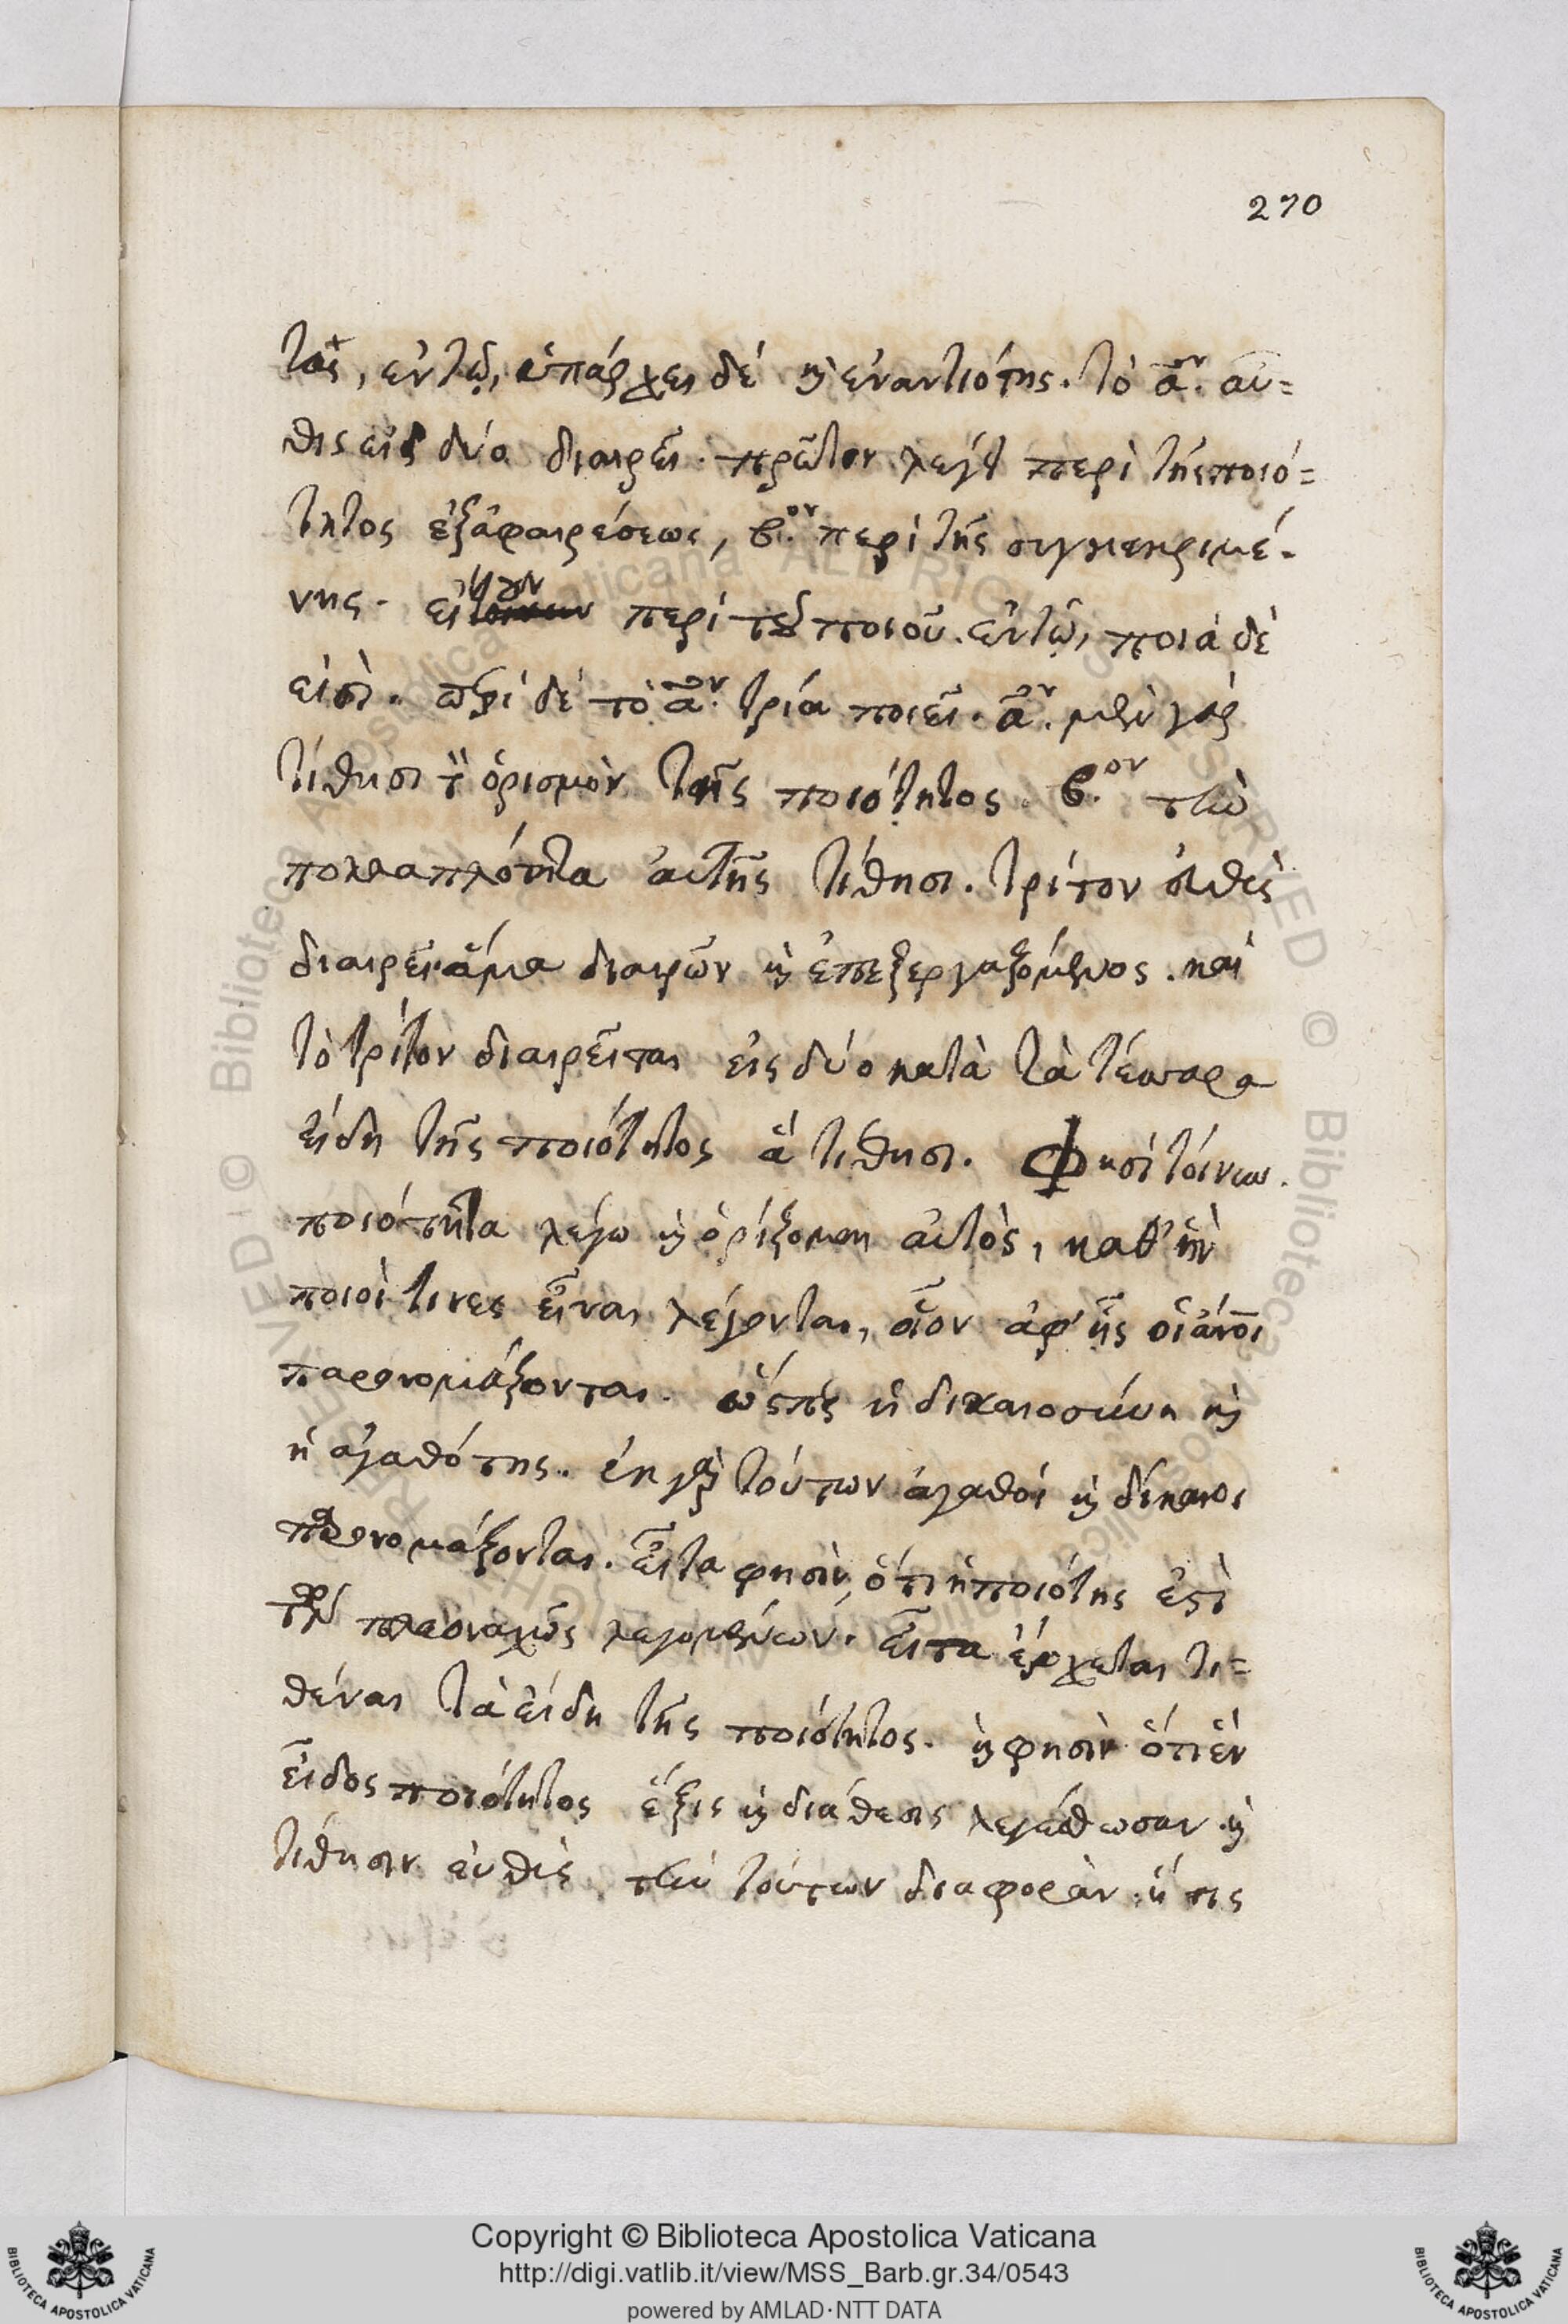 270
τας, ἐν τῷ, ὑπάρχει δέ καὶ ἐναντιότης. τὸ α.ον αὖ=
θις εἰς δύο διαιρεῖ. πρῶτον λέγει περὶ τῆς ποιό=
τητος ἐξ ἀφαιρέσεως, β.ον περὶ τῆς συγκεκριμέ-
νης. περὶ τοῦ ποιοῦ. ἐν τῷ, ποιὰ δὲ
εἰσὶ. περὶ δὲ τὸ α.ον τρία ποιεῖ. α.ον μὲν γὰρ
τίθησι τὸν ὁρισμὸν τῆς ποιότητος. β.ον τὴν
πολλαπλότητα αὐτῆς τίθησι. τρίτον εὐθὺς
διαιρεῖ ἅμα διαιρῶν καὶ ἐπεξεργαζόμενος. καὶ
τὸ τρίτον διαιρεῖται εἰς δύο κατὰ τὰ τέσσαρα
εἴδη τῆς ποιότητος ἃ τίθησι. Φησὶ τοίνυν.
ποιότητα λέγω καὶ ὁρίζομαι αὐτὸς, καθ' ἣν
ποιοὶ τινες εἶναι λέγονται, οἷον ἀφ' ἧς οἱ ἄνοι
παρονομάζονται. ὥσπερ ἡ δικαιοσύνη καὶ
ἡ ἀγαθότης. ἐκ γὰρ τούτων ἀγαθοὶ καὶ δίκαιοι
παρονομάζονται. εἶτα φησὶν, ὅτι ἡ ποιότης ἐστὶ
τῶν πλεοναχῶς λεγομένων. εἶτα ἔρχεται τι=
θέναι τὰ εἴδη τῆς ποιότητος. καὶ φησὶν ὅτι ἓν
εἶδος ποιότητος ἕξις καὶ διάθεσις λεγέσθωσαν. καὶ
τίθησιν εὐθὺς τὴν τούτων διαφορὰν. ἥ τις
Copyright © Biblioteca Apostolica Vaticana
http://digi.vatlib.it/view/MSS_Barb.gr.34/0543
powered by AMLAD·NTT DATA